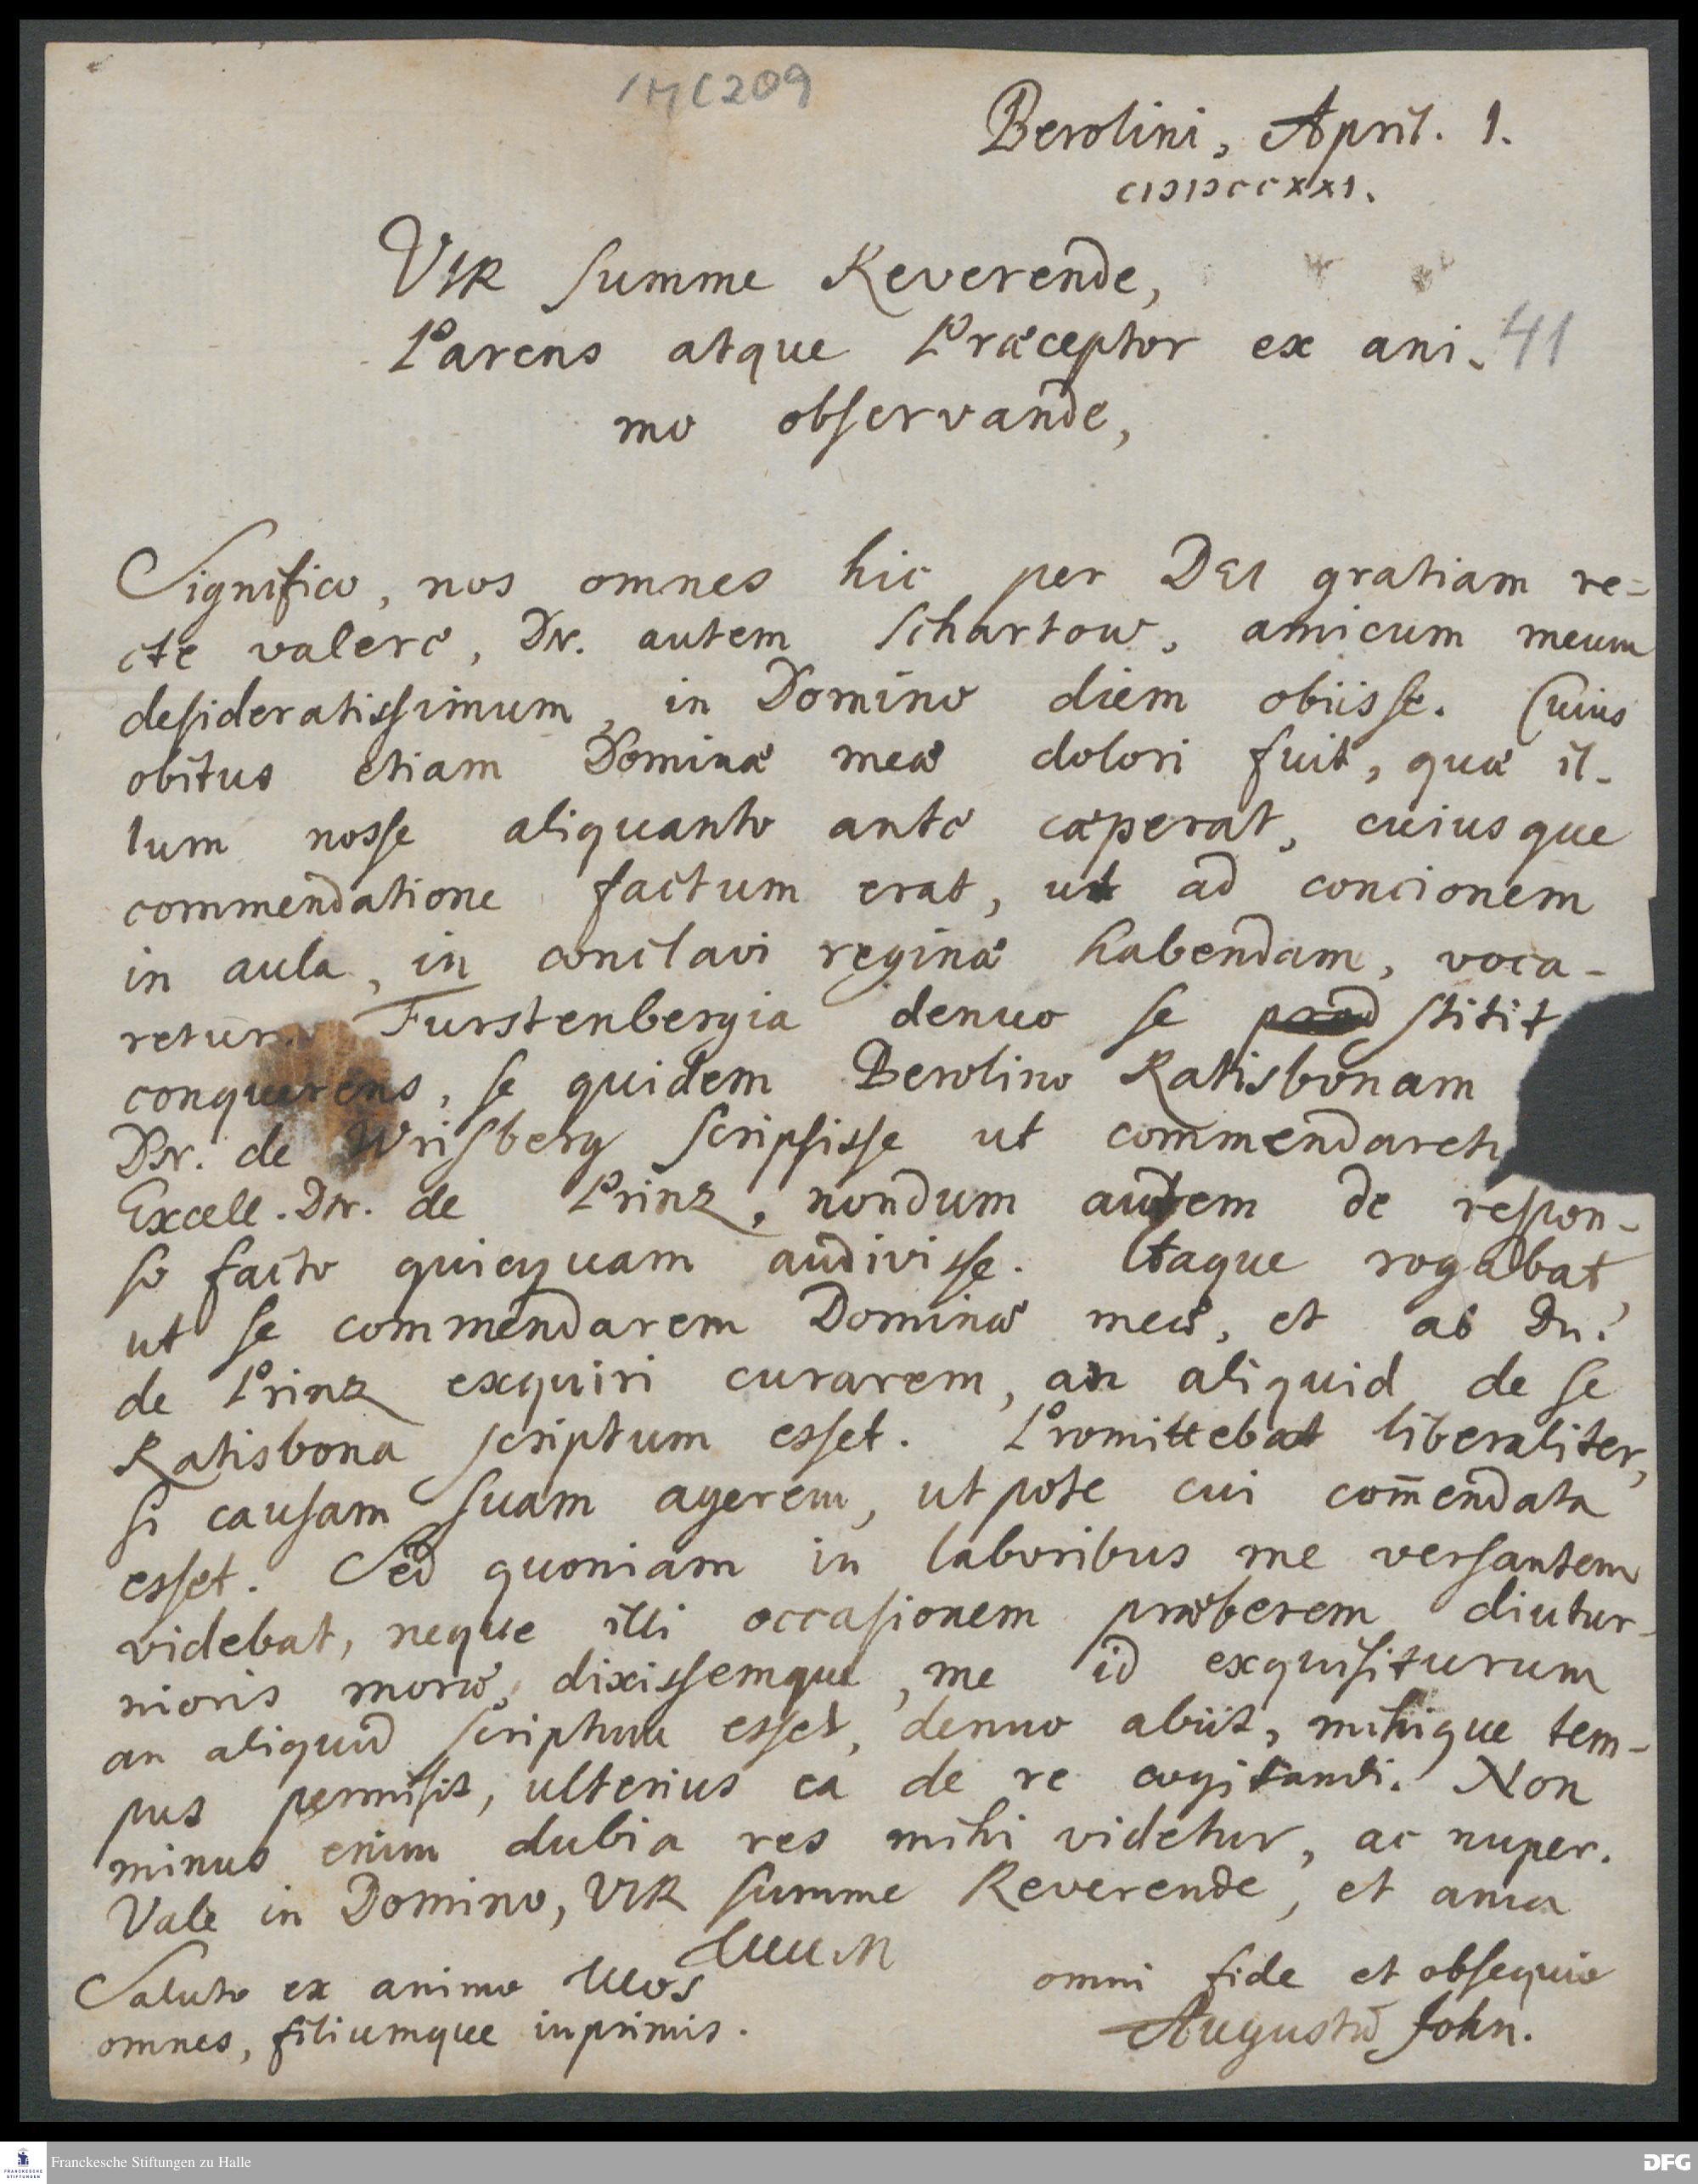 1 H C 209
Berolini, April. 1.
CIƆIƆCCXXI.
VIR summe Reverende,
Parens atque Præceptor ex ani-
41
mo observande,
Significo, nos omnes hic per DEI gratiam re-
cte valere, Dn. autem Schartow, amicum meum
desideratissimum, in Domino diem obiisse. Cuius
obitus etiam Dominæ meæ dolori fuit, quæ il-
lum nosse aliquanto ante cæperat, cuiusque
commendatione factum erat, ut ad concionem
in aula, in conclavi reginæ habendam, voca-
retur. Furstenbergia denuo se stitit
conquerens, se quidem Berolino Ratisbonam
Dn. de Wrisberg scripsisse ut commendaret
Excell. Dn. de Prinz, nondum autem de respon-
so facto quicquam audivisse. Itaque rogabat,
ut se commendarem Dominæ meæ, et ab Dn.
de Prinz exquiri curarem, an aliquid de se
Ratisbona scriptum esset. Promittebat liberaliter,
si causam suam agerem, utpote cui com̄endata
esset. Sed quoniam in laboribus me versantem
videbat, neque illi occasionem præberem diutur-
nioris moræ, dixissemque, me id exquisiturum
an aliquid scriptum esset, denuo abiit, mihique tem-
pus permisit, ulterius ea de re cogitandi. Non
minus enim dubia res mihi videtur, ac nuper.
Vale in Domino, VIR summe Reverende, et ama
tuum
Saluto ex animo tuos
omnes, filiumque inprimis.
omni fide et obsequio
Augustū John.
Franckesche Stiftungen zu Halle
DFG